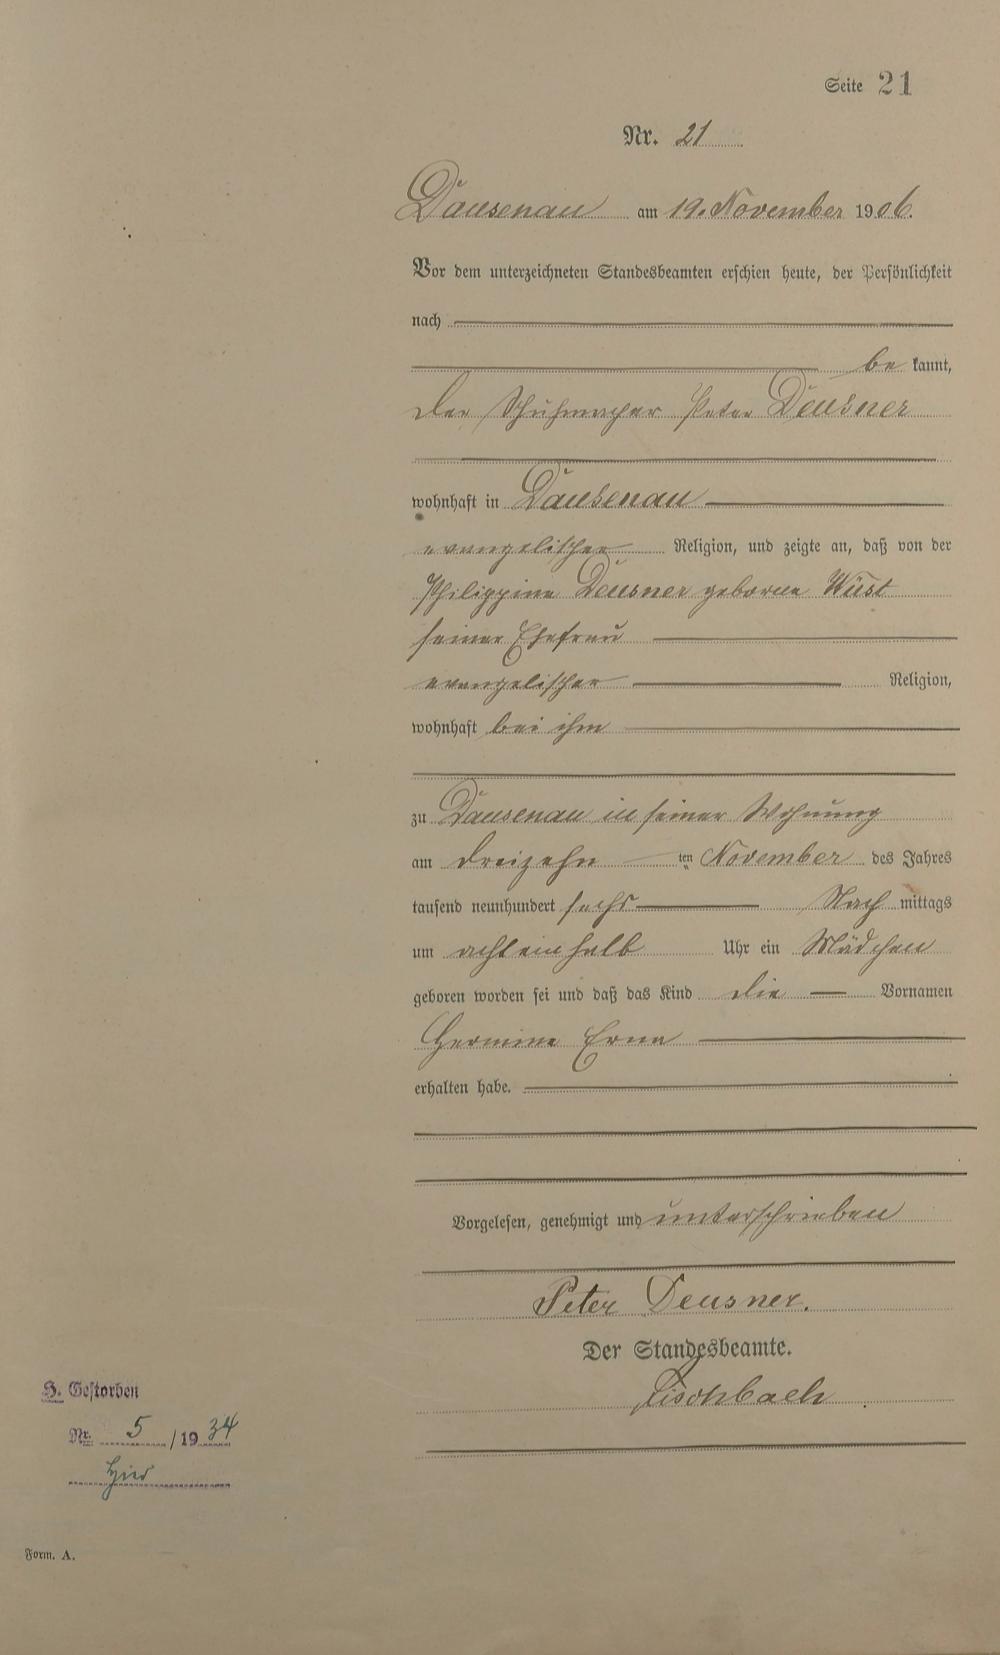 Seite 21
Nr. 21
Dausenau am 19. November 1906.
Vor dem unterzeichneten Standesbeamten erschien heute, der Persönlichkeit
nach
be kannt,
der Schuhmacher Peter Deusner
wohnhaft in Dausenau
evangelischer Religion, und zeigte an, daß von der
Philippine Deusner geborne Wüst
seiner Ehefrau
evangelischer Religion,
wohnhaft bei ihm
zu Dausenau in seiner Wohnung
am dreizehn ten November des Jahres
tausend neunhundert sechs Nach mittags
um achteinhalb Uhr ein Mädchen
geboren worden sei und daß das Kind die Vornamen
Hermine Erna
erhalten habe.
Vorgelesen, genehmigt und unterschrieben
Peter Deusner.
Der Standesbeamte.
Fischbach
H. Gestorben
Nr. 5 / 19 34
hier
Form. A.